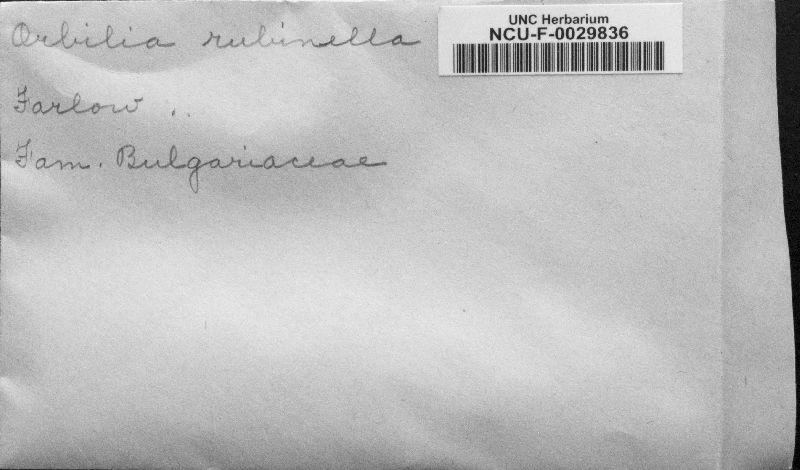 UNC Herbarium
NCU-F-0029836
Orbilia rubinella
Farlow ..
Fam. Bulgariaceae